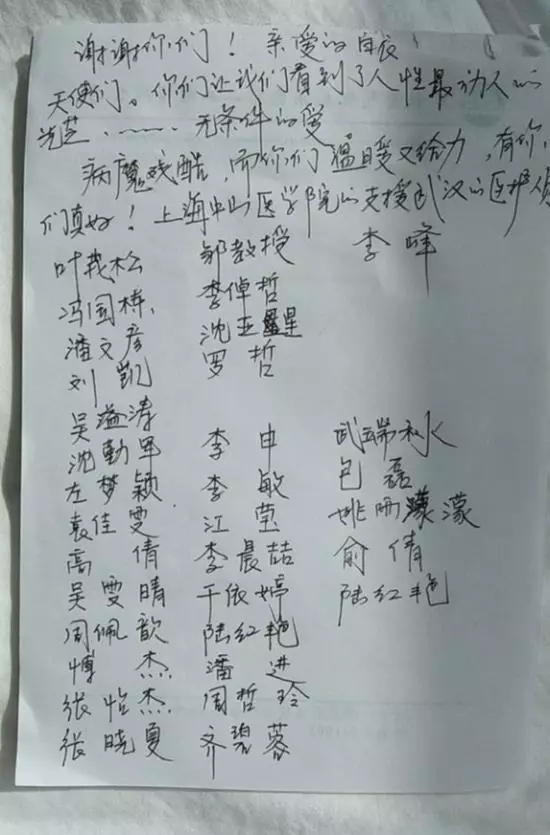 谢谢你们！亲爱的白衣
天使们。你们让我们看到了人性最动人的
光芒……无条件的爱
病魔残酷，而你们温暖又给力，有你
们真好！上海中山医学院的支援武汉的医护人员
叶茂松 邹教授 李峰
冯国栋 李倬哲
潘文彦 沈亚星
刘凯 罗哲
吴溢涛
沈勤军 李申 武端
左梦颖 李敏 包磊
袁佳雯 江莹 姚雨濛
高倩 李晨喆 俞倩
吴雯晴 于依婷 陆红艳
周佩歆 陆红艳
傅杰 潘进
张恺杰 周哲玲
张晓夏 齐碧蓉